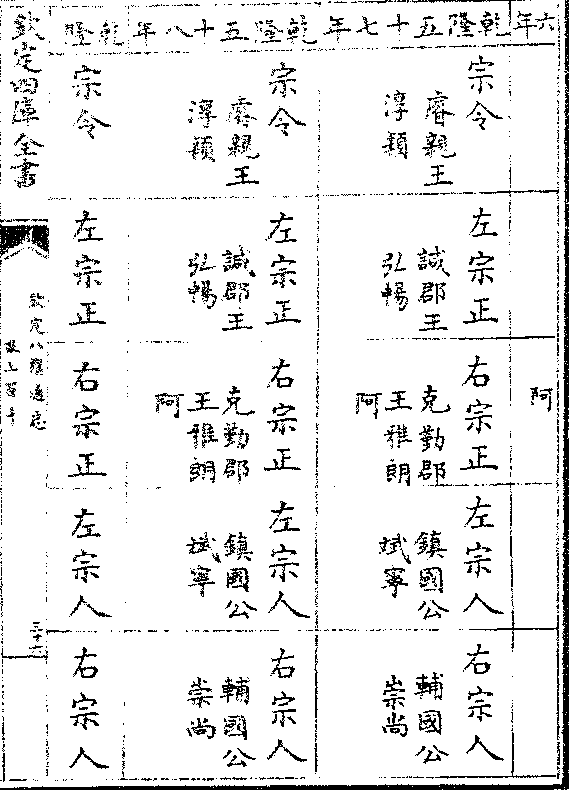 六年
阿
乾隆五十七年
宗令
睿親王
淳穎
左宗正
誠郡王
弘暢
右宗正
克勤郡
王雅朗
阿
左宗人
鎮國公
斌寧
右宗人
輔國公
崇尚
乾隆五十八年
宗令
睿親王
淳穎
左宗正
誠郡王
弘暢
右宗正
克勤郡
王雅朗
阿
左宗人
鎮國公
斌寧
右宗人
輔國公
崇尚
乾隆
宗令
左宗正
右宗正
左宗人
右宗人
欽定四庫全書
欽定八旗通志
三十六